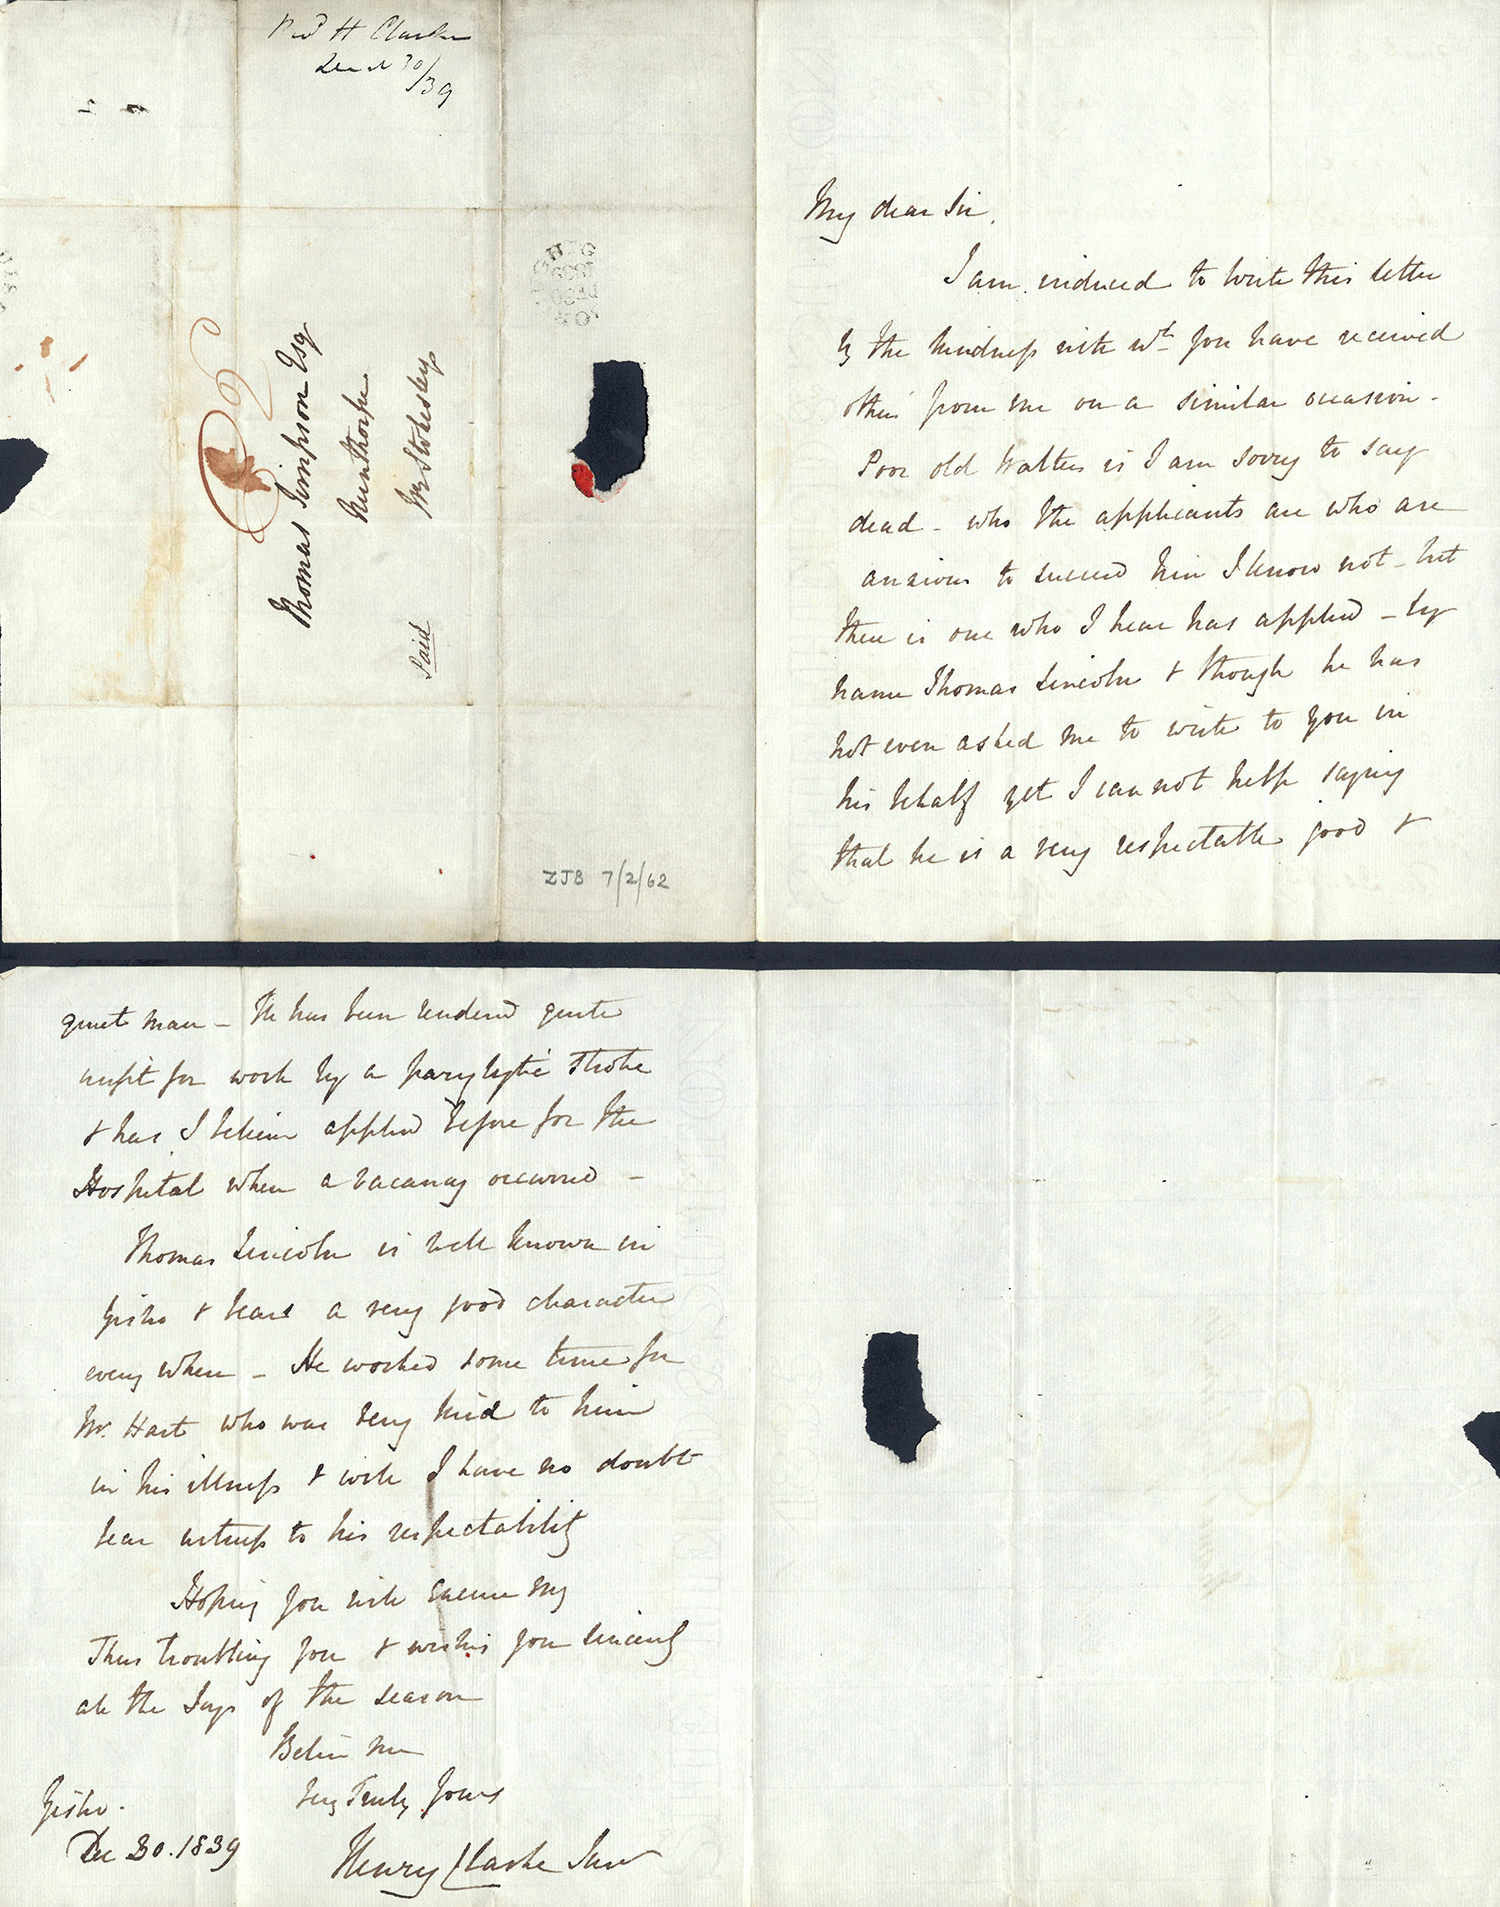 Revd H Clarke
Decr 30/39
Thomas Simpson Esq
Nunthorpe
Nr Stokesley
Paid
1839
DE30
ZJB 7/2/62
My dear Sir,
I am induced to write this letter
by the kindness with wh. you have received
others from me on a similar occasion -
Poor old Walters is I am sorry to say
dead - who the applicants are who are
anxious to succeed him I know not - but
there is one who I hear has applied - by
name Thomas Lincoln & though he has
not even asked me to write to you in
his behalf yet I can not help saying
that he is a very respectable good &
quiet man - He has been rendered quite
unfit for work by a paryletic stroke
& has I believe applied before for the
Hospital when a vacancy occurred -
Thomas Lincoln is well known in
Gisbro & bears a very good character
every where - He worked some time for
Mr. Hart who was very kind to him
in his illness & will I have no doubt
bear witness to his respectability
Hoping you will excuse my
Thus troubling you & wishing you sincerely
all the Joys of the season
Believe me
Very Truly Yours
Henry Clarke Junr
Gisbro.
Dec 30. 1839